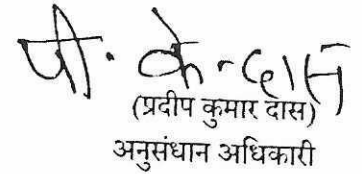 पी. के. दास
(प्रदीप कुमार दास)
अनुसंधान अधिकारी